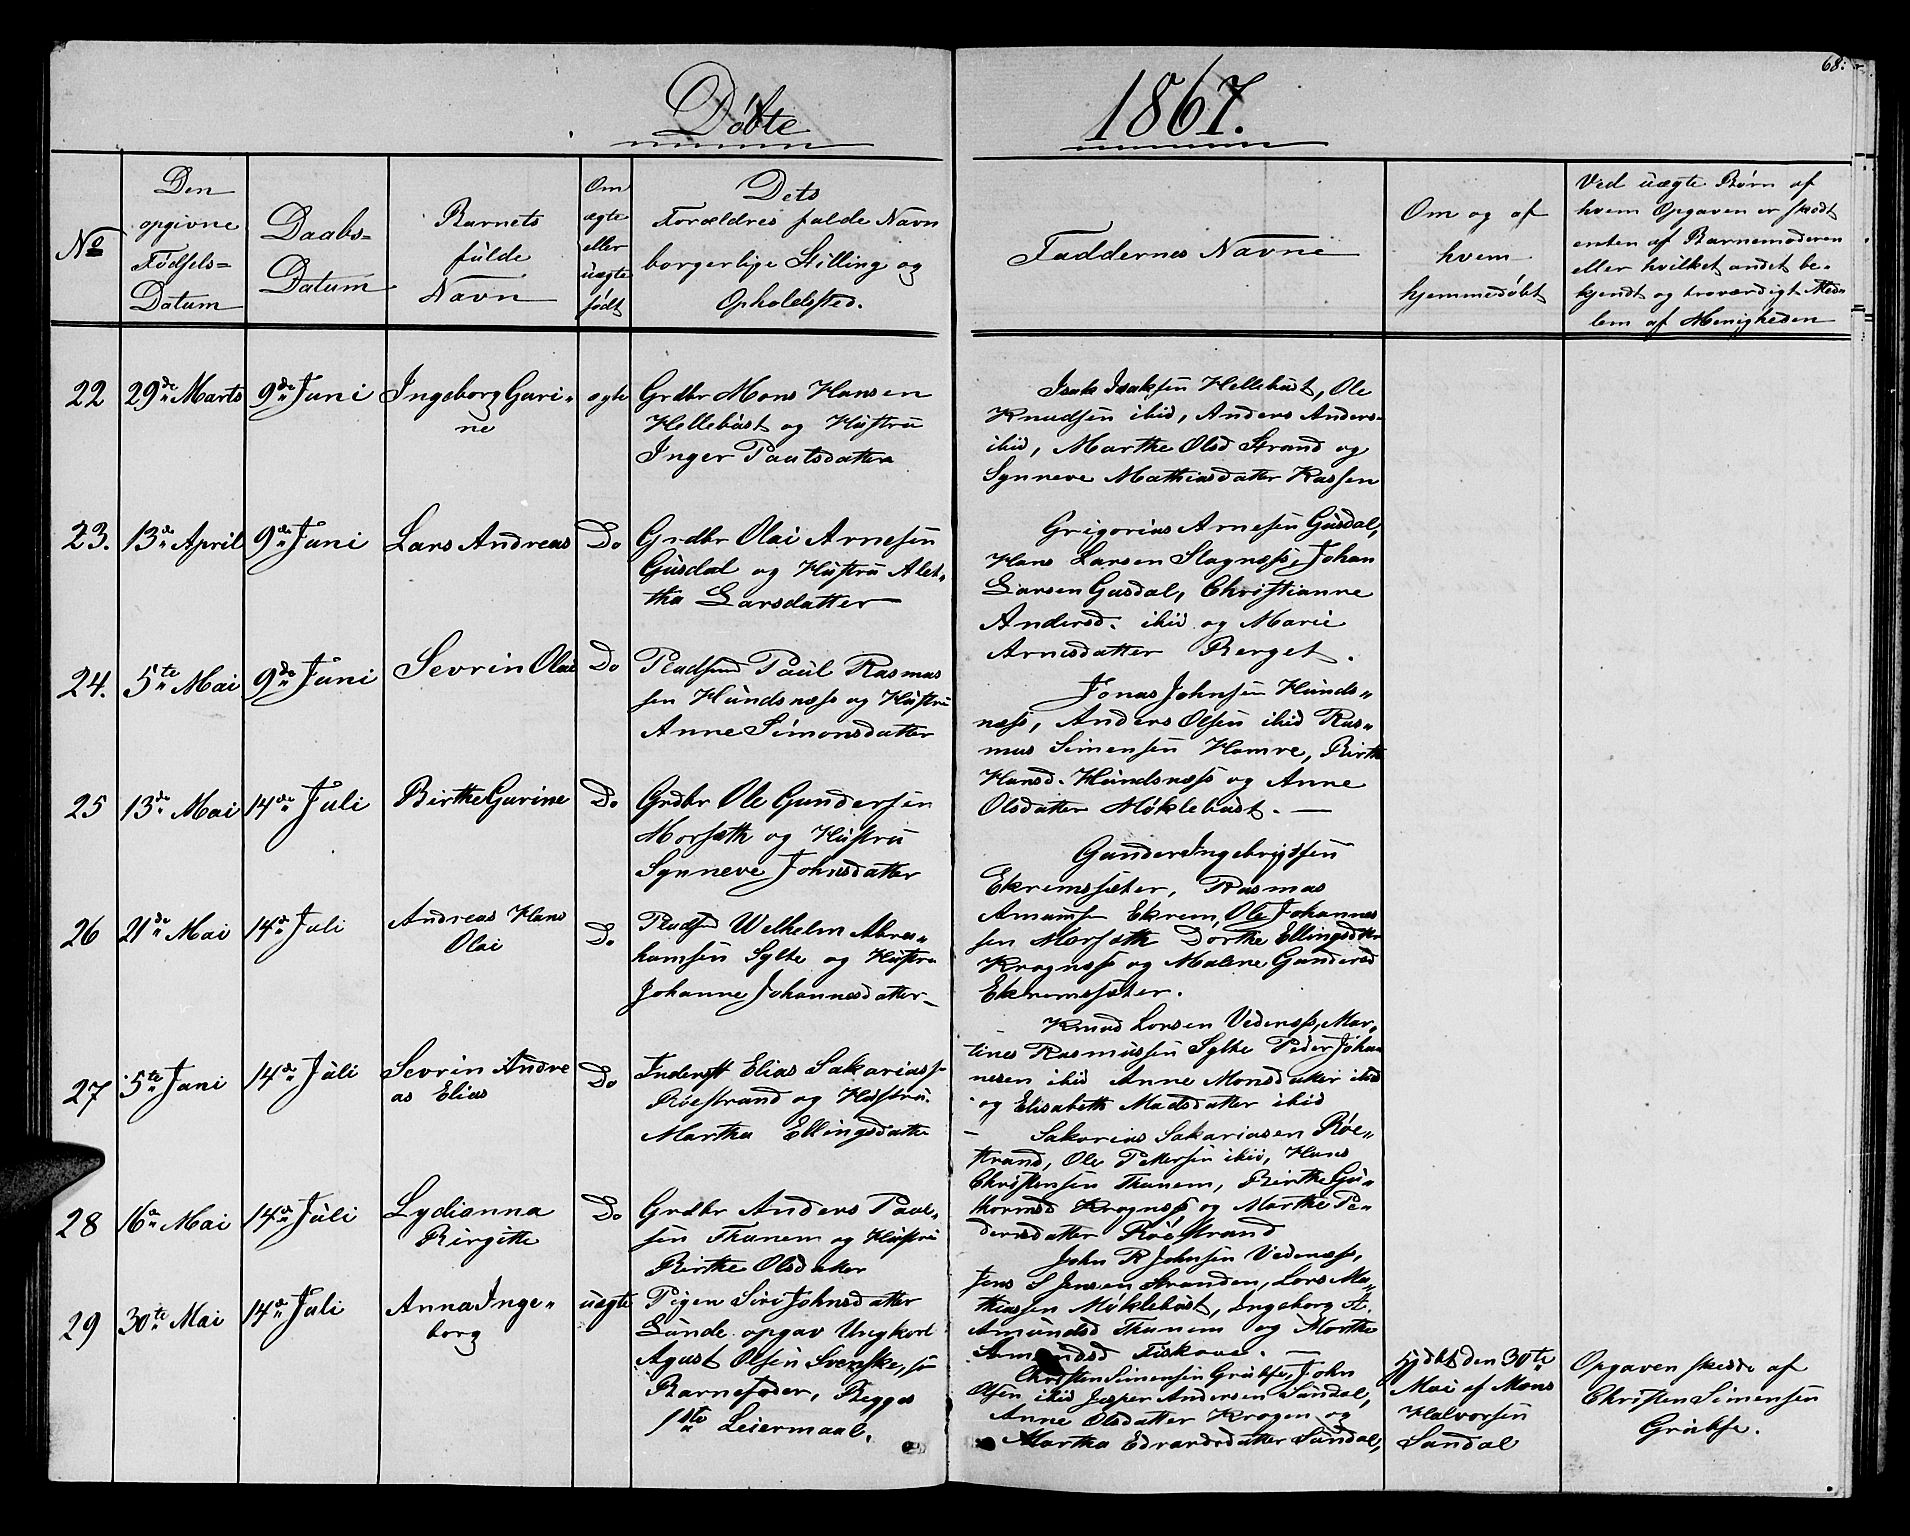 68.
Døbte 1867.
No
Den opgivne Fødsels= Datum
Daabs= Datum
Barnets fulde Navn
Om ægte eller uægte født
Dets Forældres fulde Navn borgerlige Stilling og Opholdssted.
Faddernes Navne
Om og af hvem hjemmedøbt
Ved uægte Børn af hvem Opgaven er skedt enten af Barnemoderen eller hvilket andet bekjendt og troværdigt Medlem af Menigheden
22 29de Marts 9de Juni Ingeborg Guri=
ne
ægte
Grdbr Mons Hansen
Hellebust og Hustru
Inger Paulsdatter
Isak Isaksen Hellebust, Ole
Knudsen ibid, Anders Anders=
ibid, Marthe Olsd Strand og
Synneve Mathiasdatter Kassen
23. 13de April 9de Juni Lars Andreas Do
Grdbr Olai Arnesen
Gusdal og Hustru Alet=
tha Larsdatter
Grigorius Arnesen Gusdal,
Hans Larsen Slagnæss, Johan
Larsen Gusdal, Christianne
Andersd. ibid og Marie
Arnesdatter Berget.
24. 5te Mai 9de Juni Sevrin Olai Do
Pladsmd Paul Rasmus
sen Hundsnæss og Hustru
Anne Simonsdatter
Jonas Johnsen Hunds=
næss, Anders Olsen ibid Ras=
mus Simensen Hamre, Birthe
Hansd. Hundsnæss og Anne
Olsdatter Møklebust. —
25 13de Mai 14de Juli Birthe Gurine Do
Grdbr Ole Gundersen
Morsæth og Hustru
Synneve Johnsdatter
Gunder Ingebrigtsen
Ekremssæter, Rasmus
Amunss Ekrem, Ole Johannes
sen Morsæth Dorthe Ellingsdatter
Krognæss og Malene Gundersd
Ekremssæter.
26 21de Mai 14de Juli Andreas Hans
Olai
Do
Pladsmd Wilhelm Abra=
hamsen Sylte og Hustru
Johanne Johannesdatter
Knud Larsen Vedenæss, Mar=
tines Rasmussen Sylte Peder Johan
nesen ibid Anne Monsdatter ibid
og Elisabeth Madsdatter ibid
27 5te Juni 14de Juli Sevrin Andre
as Elias
Do
Inderst Elias Sakariass
Røestrand og Hustru
Martha Ellingsdatter
Sakarias Sakariasen Røe=
strand, Ole Pettersen ibid, Hans
Christensen Thunem, Birthe Gu=
thormsd Krognæss og Marthe Pe=
dersdatter Røestrand
28 16de Mai 14de Juli Lydianna
Birgitte
Do
Grdbr Anders Paul=
sen Thunem og Hustru
Birthe Olsdatter
John R Johnsen Vedenæss,
Jens S Jensen Stranden, Lars Ma=
thiassen Møklebust, Ingeborg A.
Amundsd Thunem og Marthe
Amundsd Fiskaae. —
29 30te Mai 14de Juli Anna Inge=
borg
uægte
Pigen Siri Johnsdatter
Lunde opgav Ungkarl
Agust Olsen Svenske, som
Barnefader, Begges
1ste Leiermaal.
Christen Simensen Grubse, John
Olsen ibid Jesper Andersen Sandal,
Anne Olsdatter Krogen og
Martha Edvardsdatter Sandal,
Hjdbt den 30te
Mai af Mons
Halvorsen
Sandal
Opgaven skede af
Christen Simensen
Grubse.